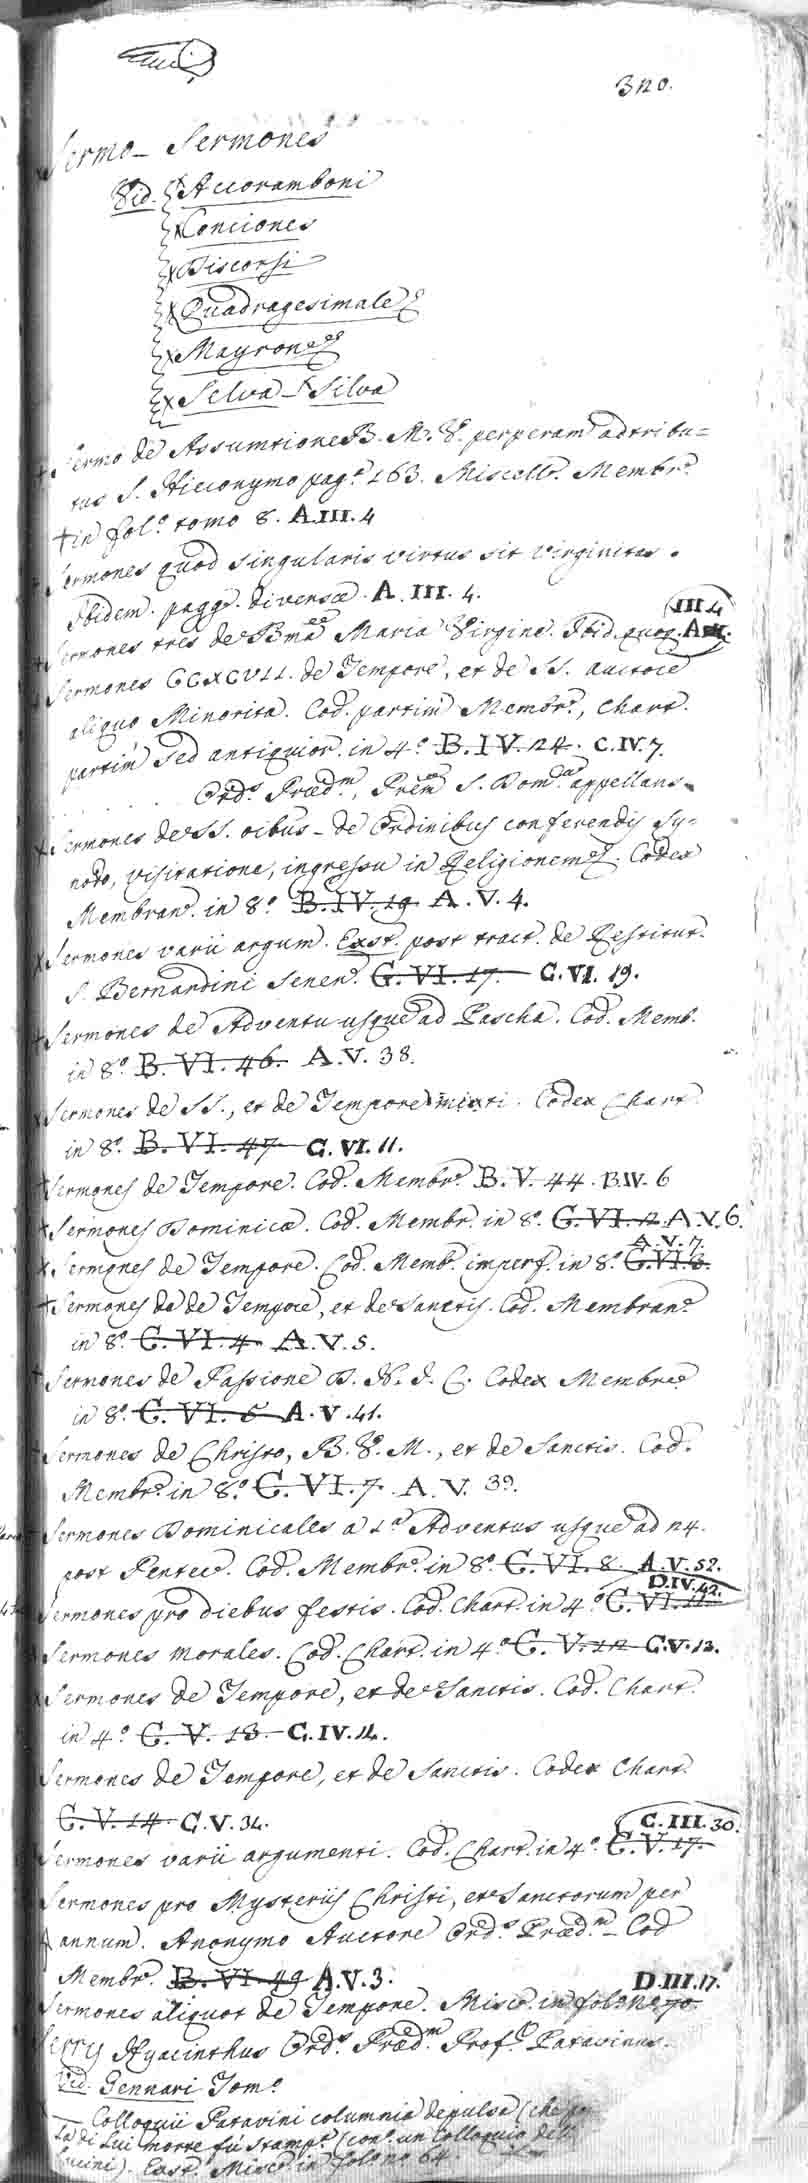 320.
Sermo - Sermones
Vid. Accoramboni
Conciones
Discorsi
Quadragesimale
Mayrones
Selva - Silva
Sermo de Assumtione B. M. V. perperam adtribu=
tus S. Hieronymo pag. 163. Miscell. Membr.
in fol. tomo 8. A.III.4
Sermones quod singularis virtus sit virginitas.
Ibidem. pagg. diversæ. A.III.4.
III.4
Sermones tres de Bma Maria Virgine. Ibid. quoq.
Sermones CCXCVII. de Tempore, et de SS. auctore
aliquo Minorita. Cod. partim Membr., Chart.
partim sed antiquior. in 4. B.IV.24. C.IV.7.
Ord. Præd. S. Dom. appellans.
Sermones de SS. oibus - de Ordinibus conferendis Sy=
nodo, visitatione, ingressu in Religionem. Codex
Membran. in 8. B.IV.19 A.V.4.
Sermones varii argum. Exst. post tract. de Restitut.
S. Bernardini Senen. C.VI.17. C.VI.19.
Sermones de Adventu usque ad Pascha. Cod. Memb.
in 8. B.VI.46. A.V.38.
Sermones de SS., et de Tempore mixti. Codex Chart.
in 8. B.VI.47 C.VI.11.
Sermones de Tempore. Cod. Membr. B.V.44. B.IV.6
Sermones Dominicæ. Cod. Membr. in 8. C.VI.2 A.V.6.
A.V.7.
Sermones de Tempore. Cod. Memb. imperf. in 8. C.VI.3.
Sermones de de Tempore, et de Sanctis. Cod. Membran.
in 8. C.VI.4 A.V.5.
Sermones de Passione D. N. J. C. Codex Membr.
in 8. C.VI.5 A.V.41.
Sermones de Christo, B. V. M., et de Sanctis. Cod.
Membr. in 8. C.VI.7. A.V.39.
Sermones Dominicales a 1a Adventus usque ad 24.
post Pentec. Cod. Membr. in 8. C.VI.8. A.V.52.
D.IV.42.
Sermones pro diebus festis. Cod. Chart. in 4. C.VI.11
Sermones morales. Cod. Chart. in 4. C.V.12 C.V.13.
Sermones de Tempore, et de Sanctis. Cod. Chart.
in 4. C.V.13. C.IV.14.
Sermones de Tempore, et de Sanctis. Codex Chart.
C.V.14. C.V.34.
C.III.30.
Sermones varii argumenti. Cod. Chart. in 4. C.V.17.
Sermones pro Mysteriis Christi, et Sanctorum per
annum. Anonymo Auctore Ord. Præd. - Cod
Membr. B.VI.49 A.V.3. D.III.17.
Sermones aliquot de Tempore. Misc. in fol. No 70.
Serry Hyacinthus Ord. Præd. Prof. Patavinus.
Vid. Gennari Tom.
Colloquii Patavini columnia depulsa (che
la di lui morte fù stamp. (con un Colloquio
Exst. Misc. in fol. no 64.